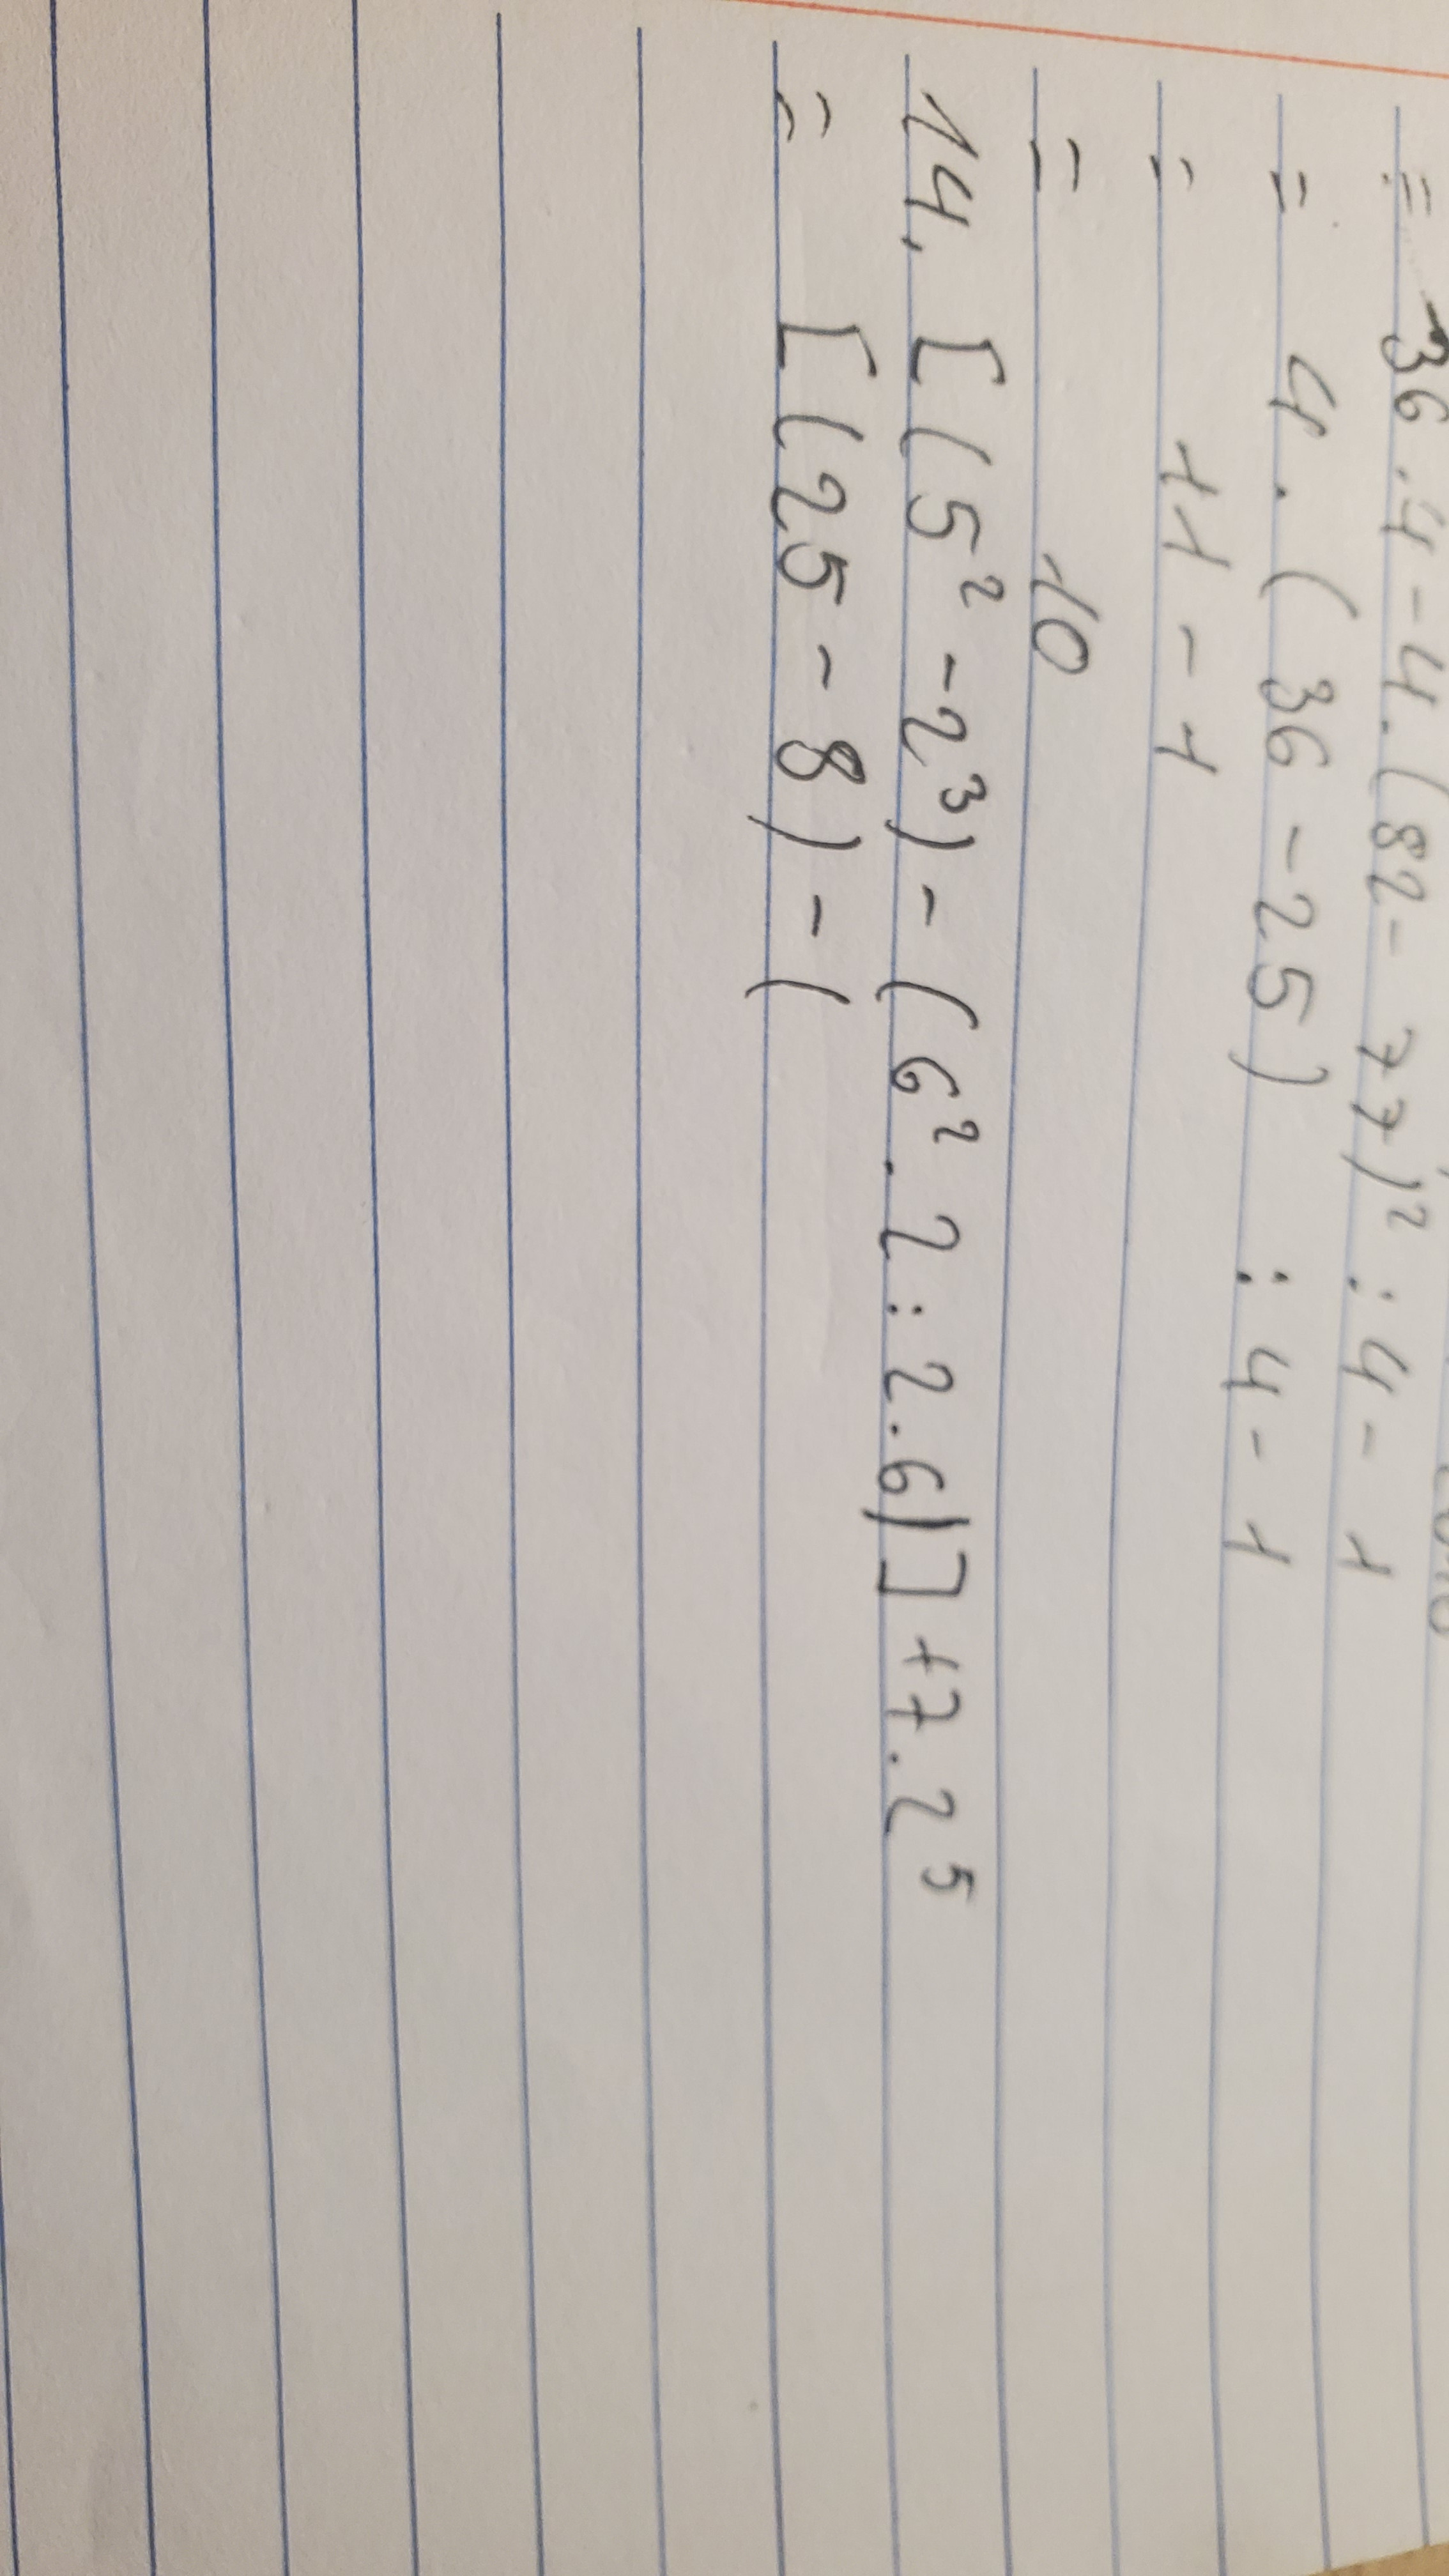 = 36.4-4.(82-77)²:4-1
= 4.(36-25) :4-1
= 11-1
= 10
14, [(5²-2³)-(6².2:2.6)]+7.2⁵
= [(25-8)-(